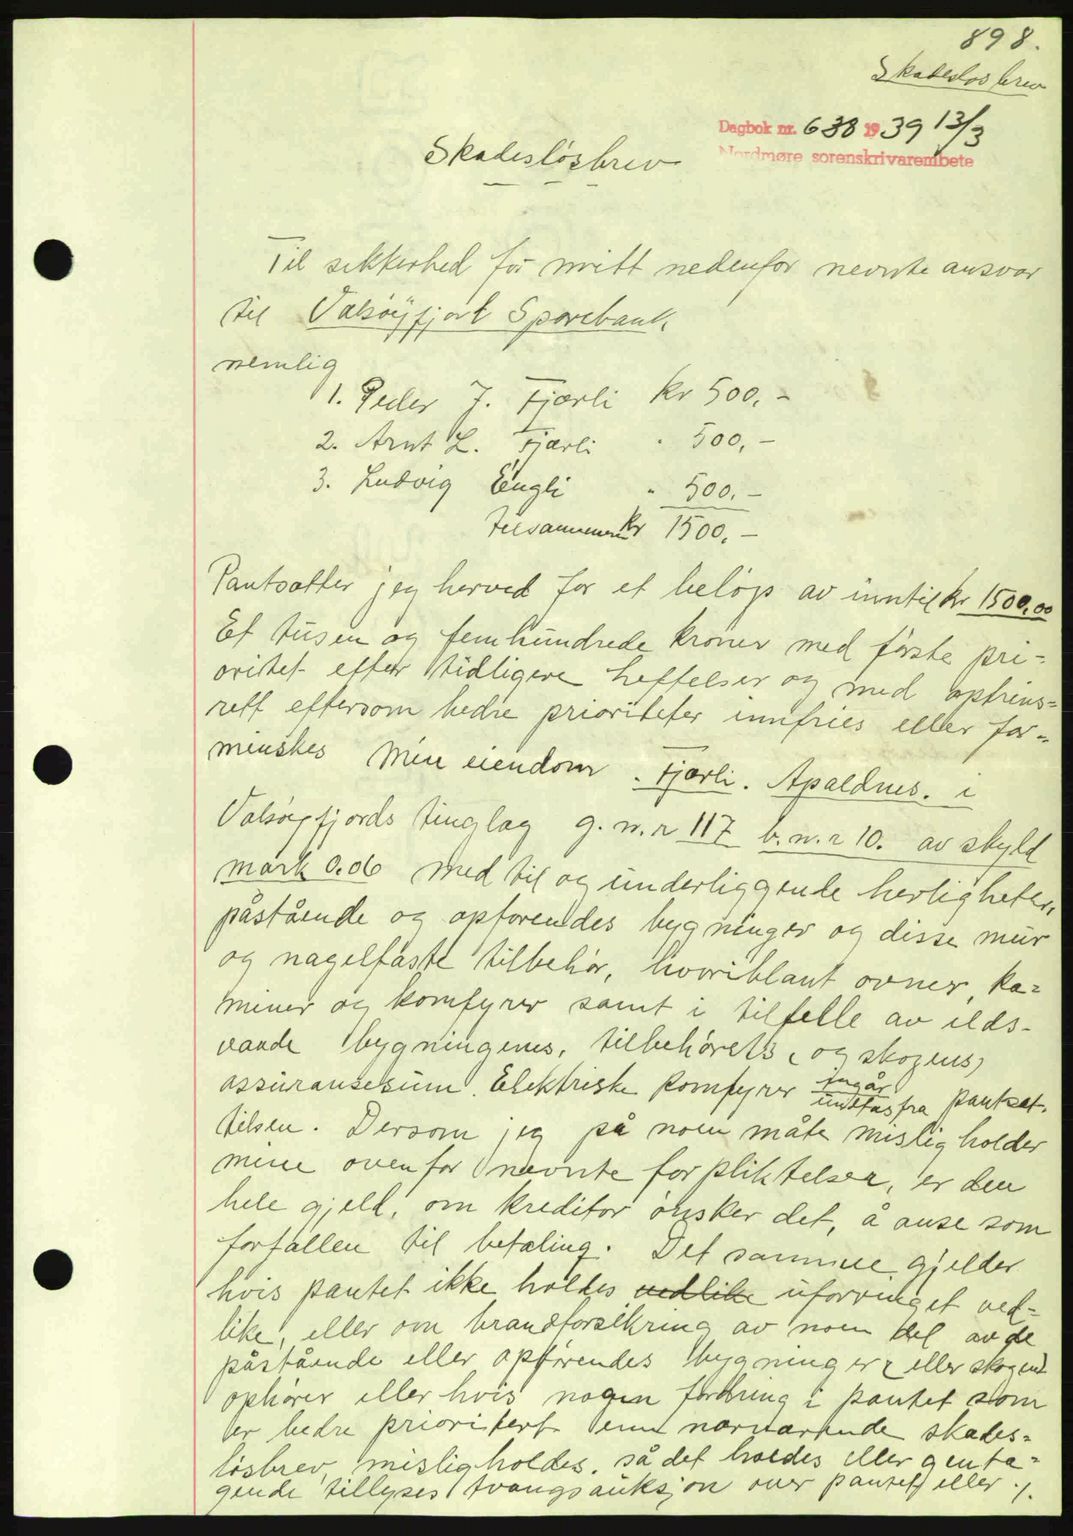 898.
Skadeslos brev
Dagbok nr. 638 1939 13/3
Nordmøre sorenskrivarembete
Skadesløsbrev
Til sikkerhed for mitt nedenfor nevnte ansvar
til Valsøyfjord Sparebank
nemlig
1. Peder J. Fjærli kr 500,-
2. Arnt L. Fjærli " 500,-
3. Ludvig Engli " 500,-
tilsammen kr 1500,-
Pantsetter jeg herved for et beløp av inntil kr 1500,00
Et tusen og femhundrede kroner med første pri=
oritet efter tidligere heftelser og med optrins=
rett eftersom bedre prioriteter innfries eller for=
minskes min eiendom. Fjærli. Apaldnes. i
Valsøyfjords tinglag g.n.r 117 b.n.r 10. av skyld
mark 0.06 med til og underliggende herligheter,
påstående og opførendes bygninger og disse mur
og nagelfaste tilbehør, hvoriblant ovner, ka=
miner og komfyrer samt i tilfelle av ilds-
vaade bygningenes, tilbehørets, (og skogens)
assuransesum. Elektriske komfyrer inngår
undtas fra pantset-
telsen. Dersom jeg på noen måte misligholder
mine ovenfor nevnte forpliktelser, er den
hele gjeld, om kreditor ønsker det, å anse som
forfallen til betaling. Det samme gjelder
hvis pantet ikke holdes vedlike uforringet ved=
like, eller om brandforsikring av noen del av de
påstående eller opførendes bygninger (eller skogen)
ophører eller hvis nogen fordring i pantet som
er bedre prioritert enn nærværende skades=
løsbrev, misligholdes, så det holdes eller genta=
gende tillyses tvangsauksjon over pantet eller ./.